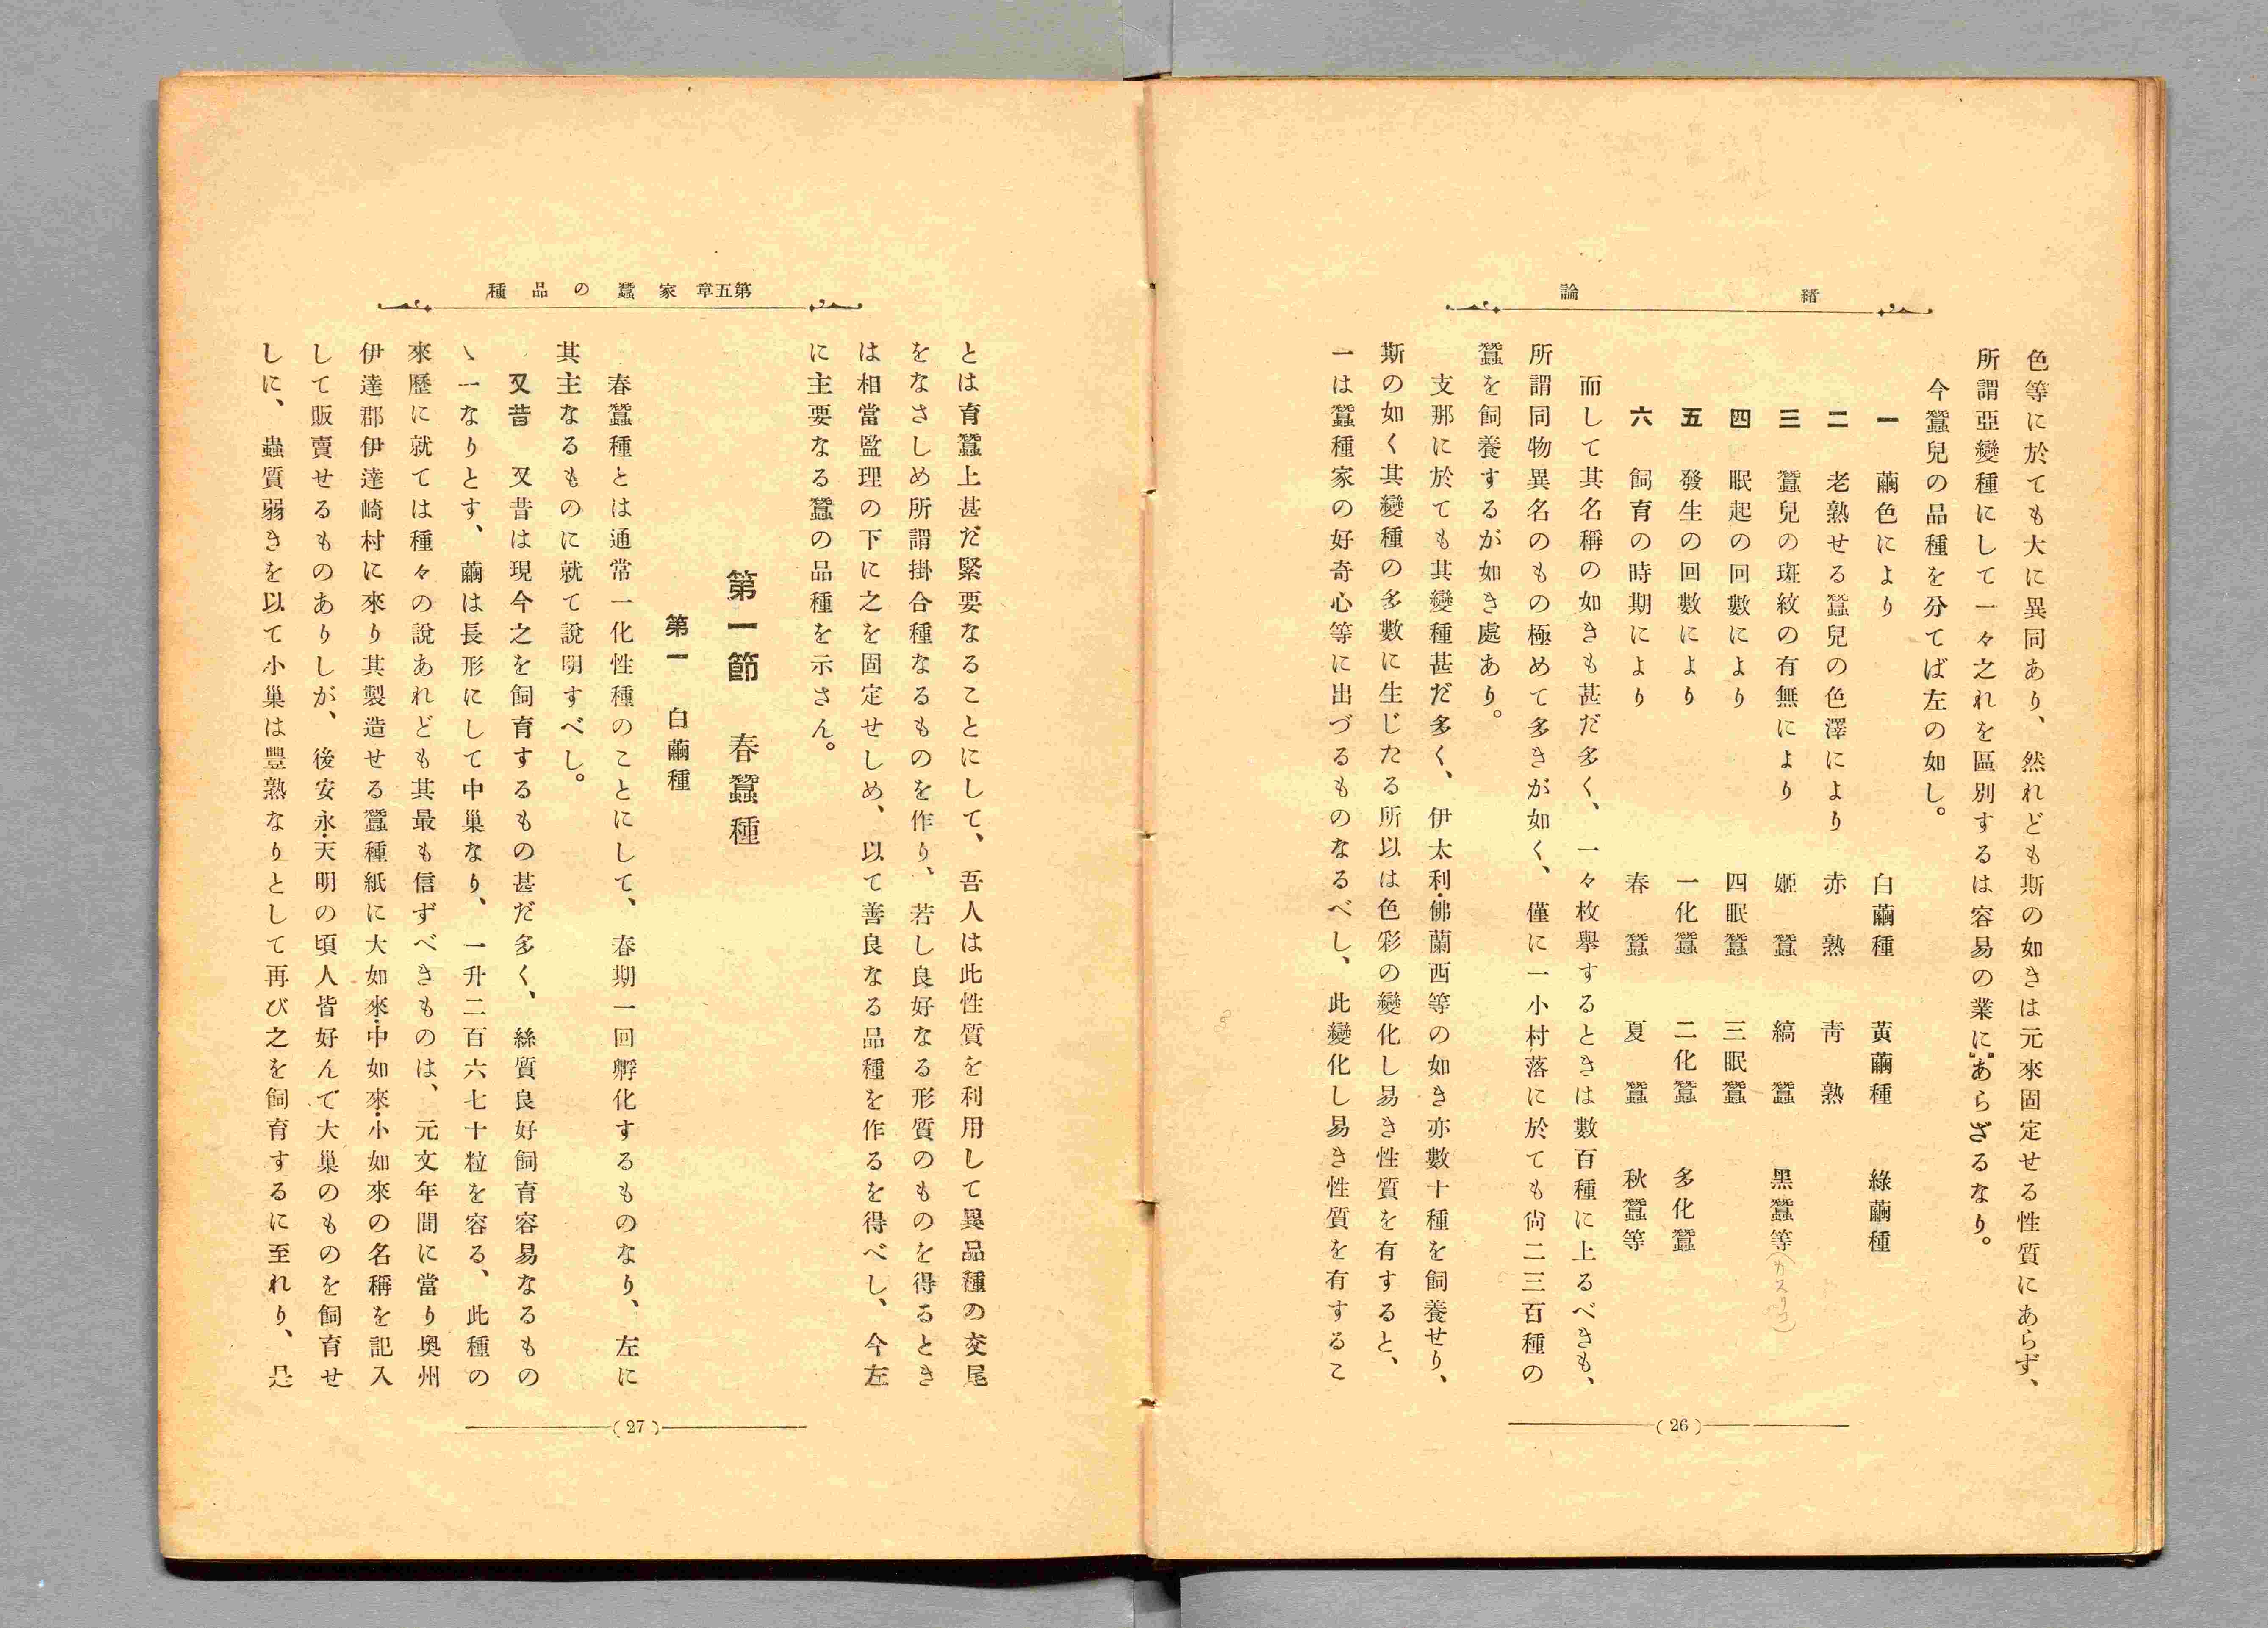 緒論
色等に於ても大に異同あり、然れども斯の如きは元來固定せる性質にあらず、
所謂亞變種にして一々之れを區別するは容易の業にあらざるなり。
今蠶兒の品種を分てば左の如し。
一 繭色により 白繭種 黃繭種 綠繭種
二 老熟せる蠶兒の色澤により 赤熟 靑熟
三 蠶兒の斑紋の有無により 姬蠶 縞蠶 黑蠶等(カスリコ)
四 眠起の回數により 四眠蠶 三眠蠶
五 發生の回數により 一化蠶 二化蠶 多化蠶
六 飼育の時期により 春蠶 夏蠶 秋蠶等
而して其名稱の如きも甚だ多く、一々枚擧するときは數百種に上るべきも、
所謂同物異名のもの極めて多きが如く、僅に一小村落に於ても尙二三百種の
蠶を飼養するが如き處あり。
支那に於ても其變種甚だ多く、伊太利・佛蘭西等の如き亦數十種を飼養せり、
斯の如く其變種の多數に生じたる所以は色彩の變化し易き性質を有すると、
一は蠶種家の好奇心等に出づるものなるべし、此變化し易き性質を有するこ
(26)
第五章 家蠶の品種
とは育蠶上甚だ緊要なることにして、吾人は此性質を利用して異品種の交尾
をなさしめ所謂掛合種なるものを作り、若し良好なる形質のものを得るとき
は相當監理の下に之を固定せしめ、以て善良なる品種を作るを得べし、今左
に主要なる蠶の品種を示さん。
第一節 春蠶種
第一 白繭種
春蠶種とは通常一化性種のことにして、春期一回孵化するものなり、左に
其主なるものに就て說明すべし。
又昔 又昔は現今之を飼育するもの甚だ多く、絲質良好飼育容易なるもの
ヽ一なりとす、繭は長形にして中巢なり、一升二百六七十粒を容る、此種の
來歷に就ては種々の說あれども其最も信ずべきものは、元文年間に當り奧州
伊達郡伊達崎村に來り其製造せる蠶種紙に大如來・中如來・小如來の名稱を記入
して販賣せるものありしが、後安永・天明の頃人皆好んで大巢のものを飼育せ
しに、蟲質弱きを以て小巢は豐熟なりとして再び之を飼育するに至れり、是
(27)